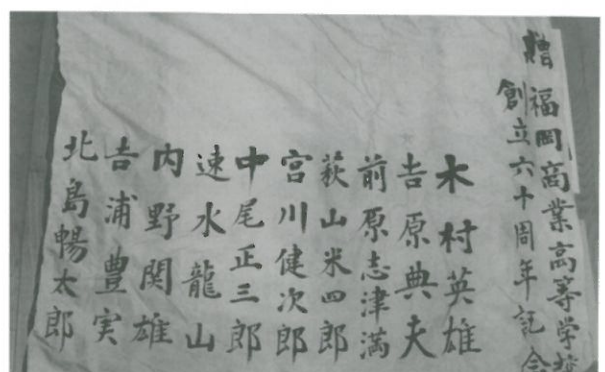 贈福岡商業高等学校
創立六十周年記念
木村英雄
吉原典夫
前原志津満
萩山米四郎
宮川健次郎
中尾正三郎
速水龍山
内野関雄
吉浦豊実
北島暢太郎